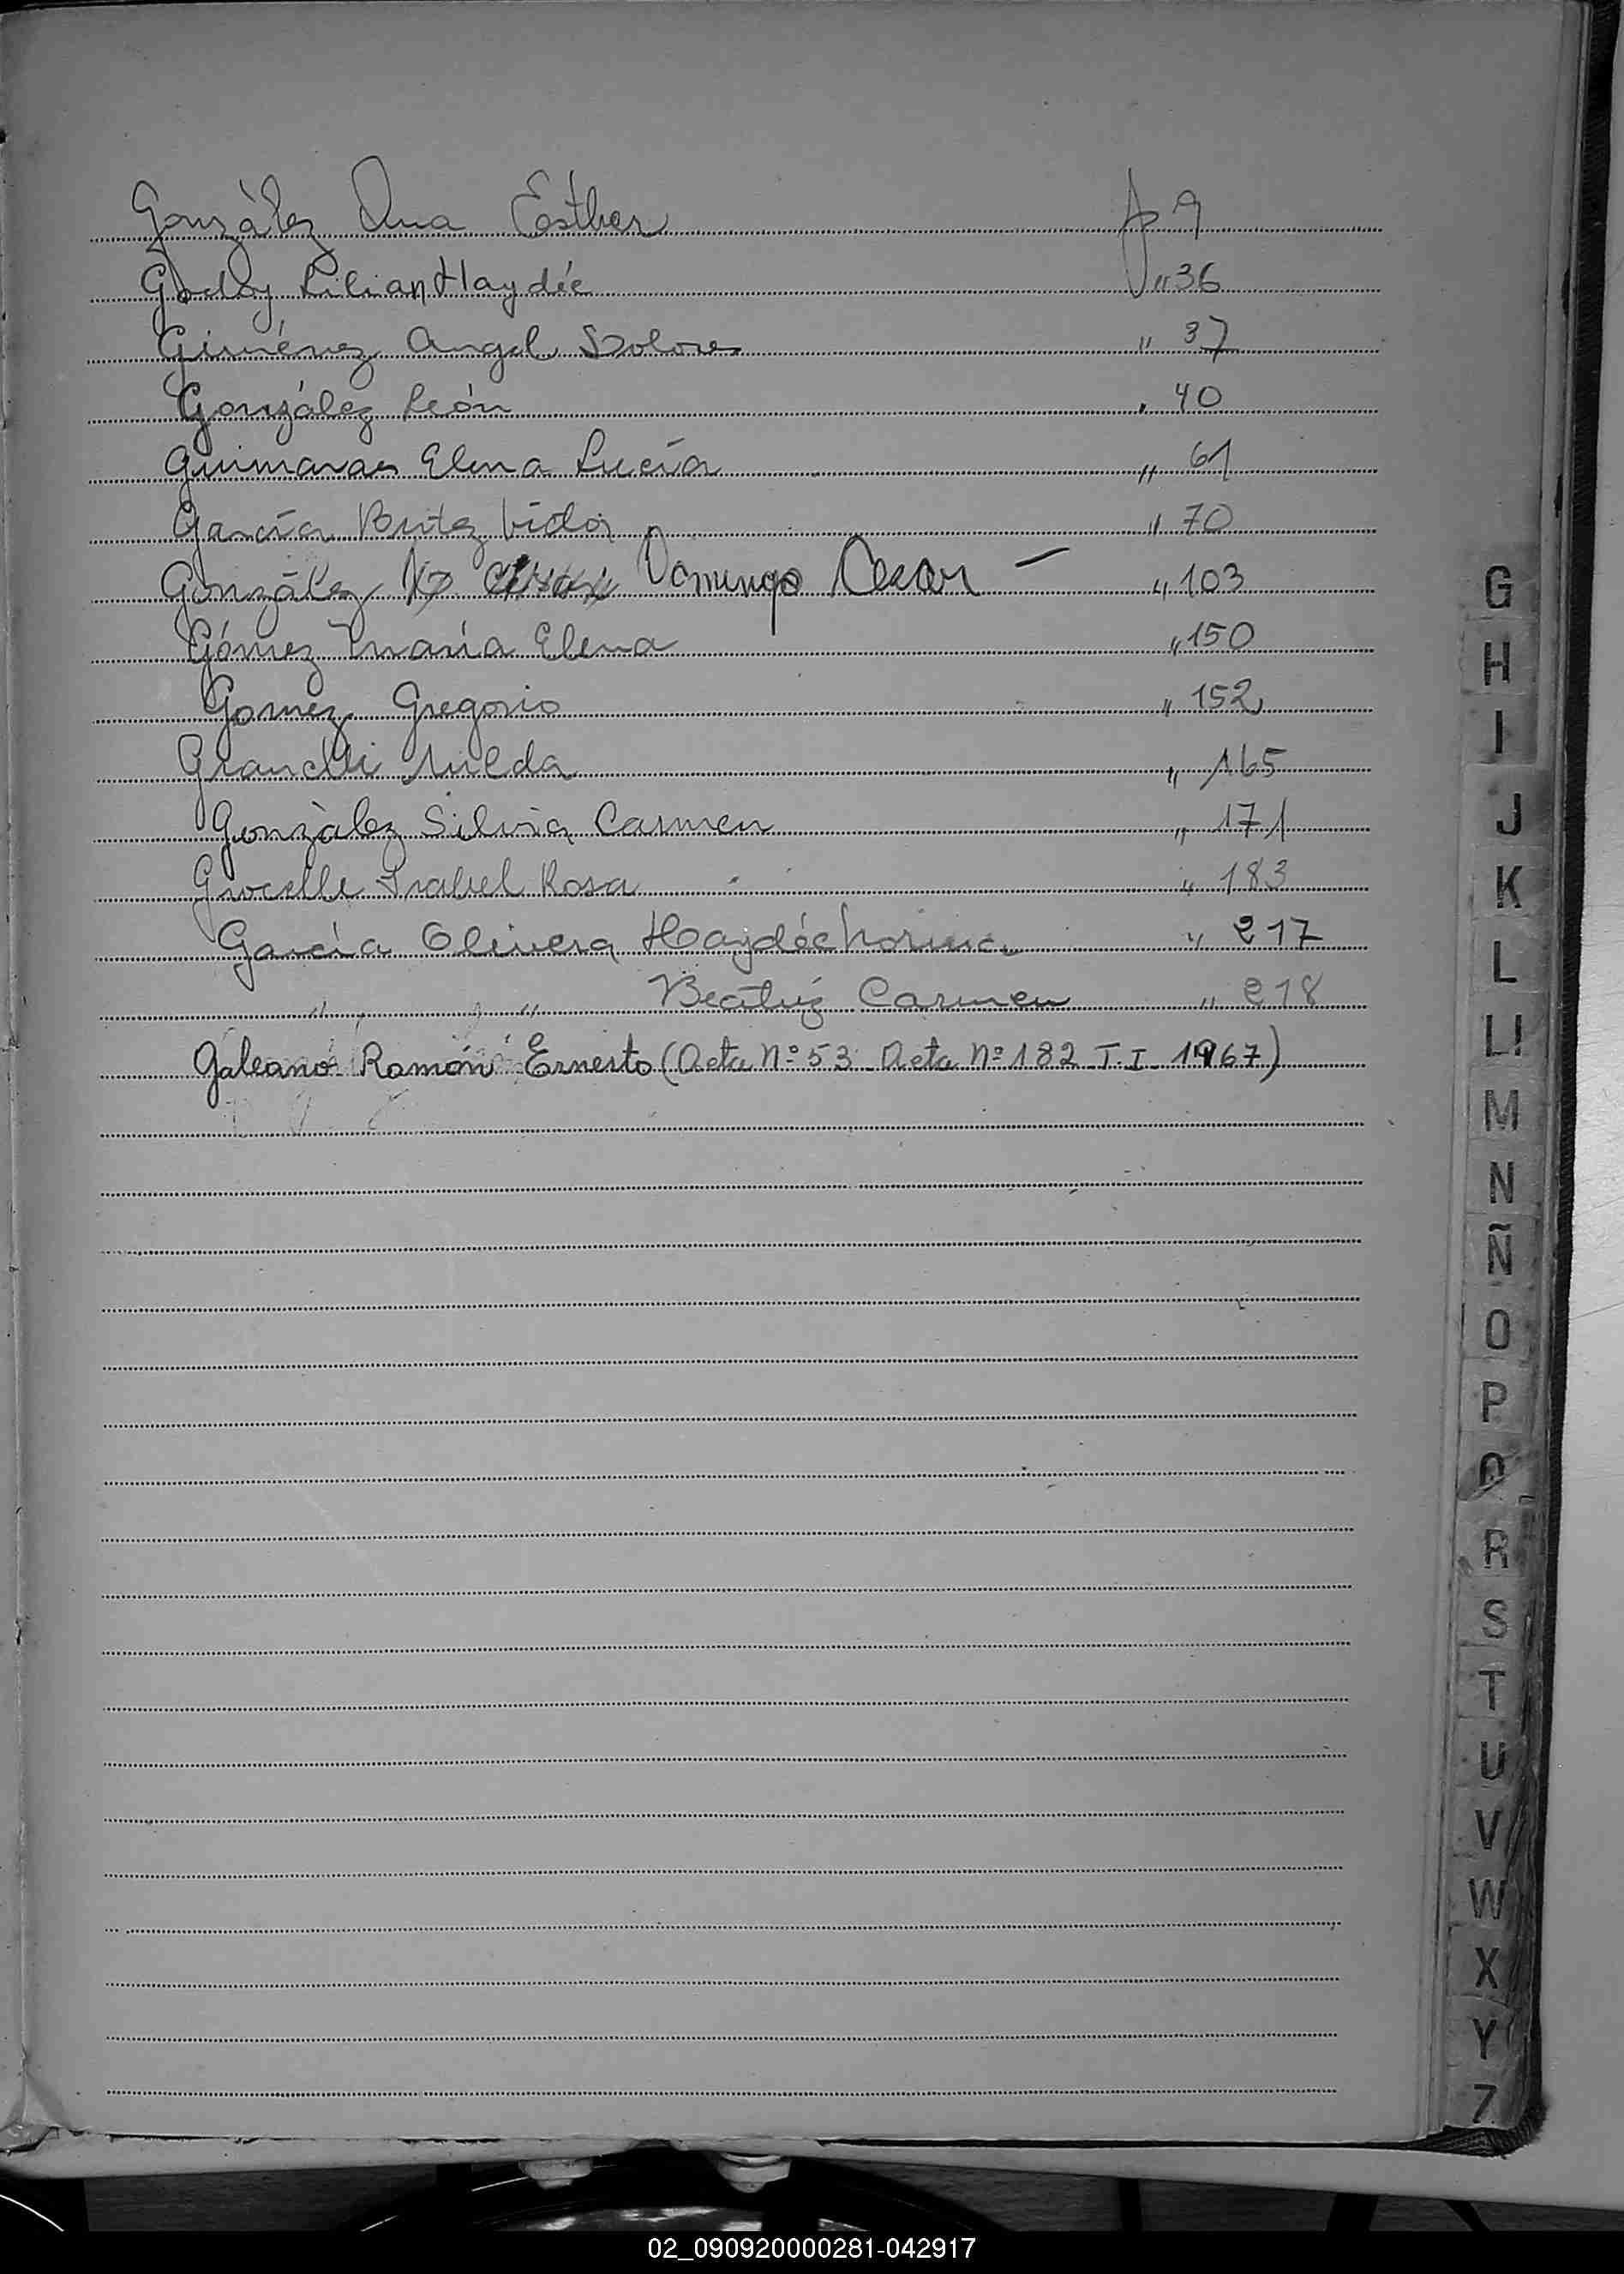 González Ana Esther f 9
Godoy Lilian Haydée " 36
Giménez Angel Dolores " 37
González León " 40
Guimaraes Elena Lucía " 61
García Brítez " 70
González Domingo Cesar — " 103
Gómez María Elena " 150
Gomez Gregorio " 152
Nilda " 165
Gonzàlez Silvia Carmen " 171
Isabel Rosa " 183
García Olivera Haydée Norma " 217
" " Beatríz Carmen " 218
Galeano Ramón Ernesto (Acta Nº 53 - Acta Nº 182 - T. I - 1967)
G
H
I
J
K
L
Ll
M
N
Ñ
O
P
Q
R
S
T
U
V
W
X
Y
Z
02_090920000281-042917